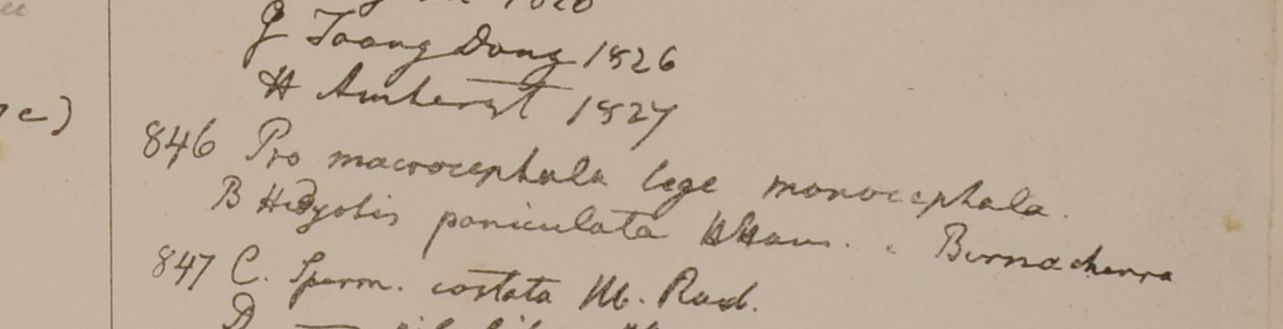 1826
G Toong Dong 1826
H Amherst 1827
846 Pro macrocephala lege monocephala.
B Hedyotis paniculata HHam.
847 C. Sperm. costata Hb. Roxb.
D